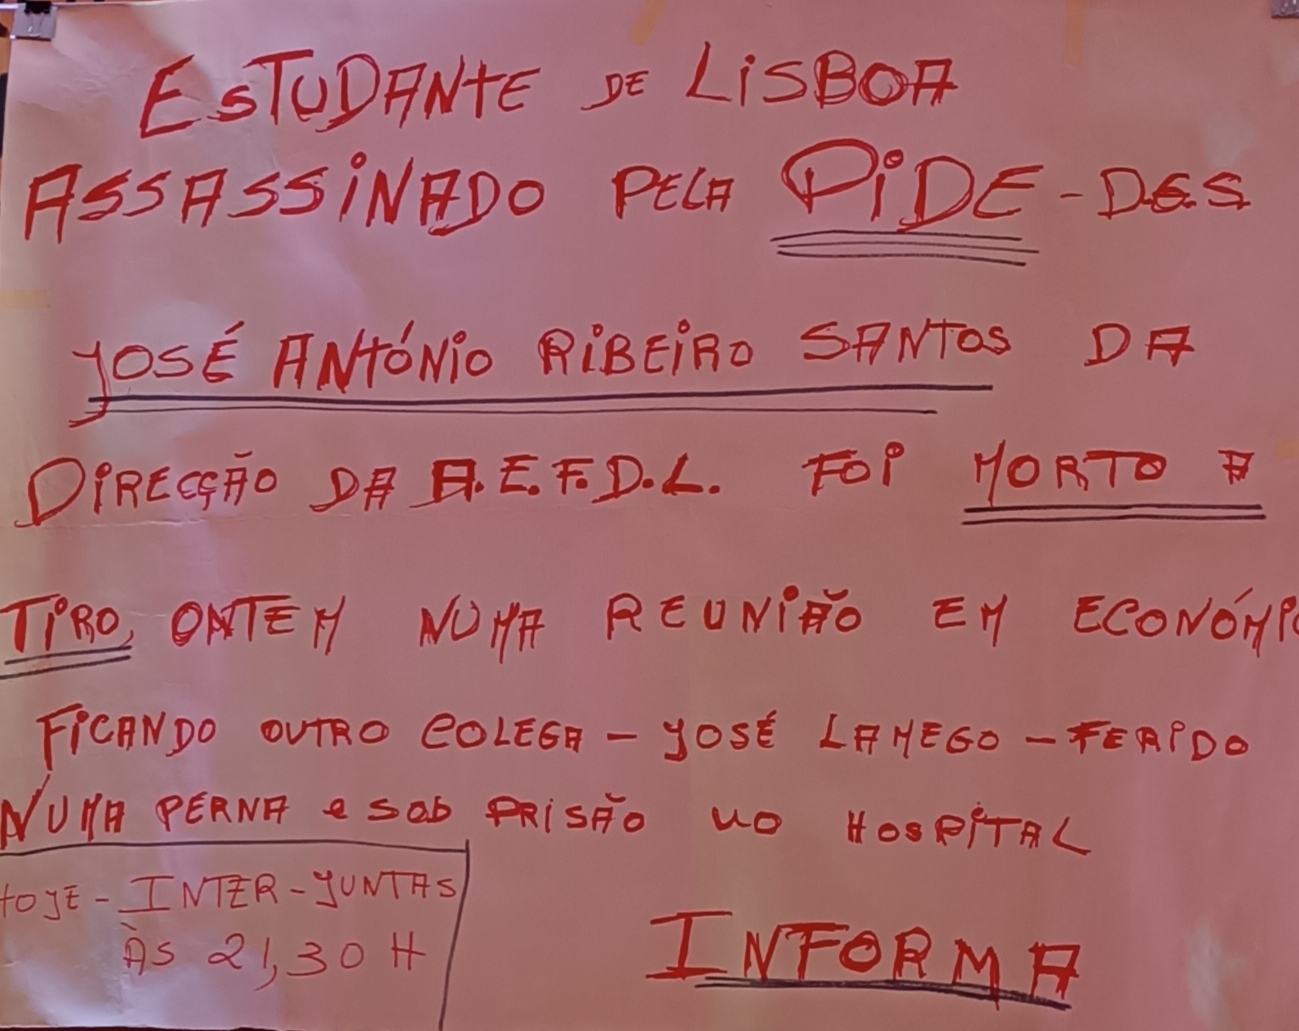 ESTUDANTE DE LISBOA
ASSASSINADO PELA PIDE-D.G.S
JOSÉ ANTÓNIO RIBEIRO SANTOS DA
DIRECÇÃO DA A.E.F.D.L. FOI MORTO A
TIRO, ONTEM NUMA REUNIÃO EM ECONÓMIC
FICANDO OUTRO COLEGA - JOSÉ LAMEGO - FERIDO
NUMA PERNA e sob PRISÃO NO HOSPITAL
HOJE - INTER-JUNTAS
ÀS 21,30 H
INFORMA